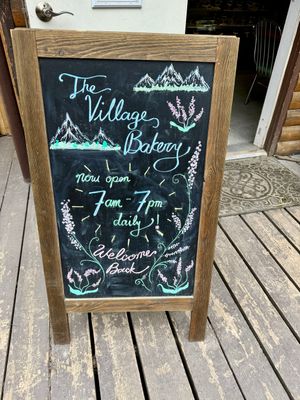 The
Village
Bakery
now open
7am - 7pm
daily!
Welcome
Back